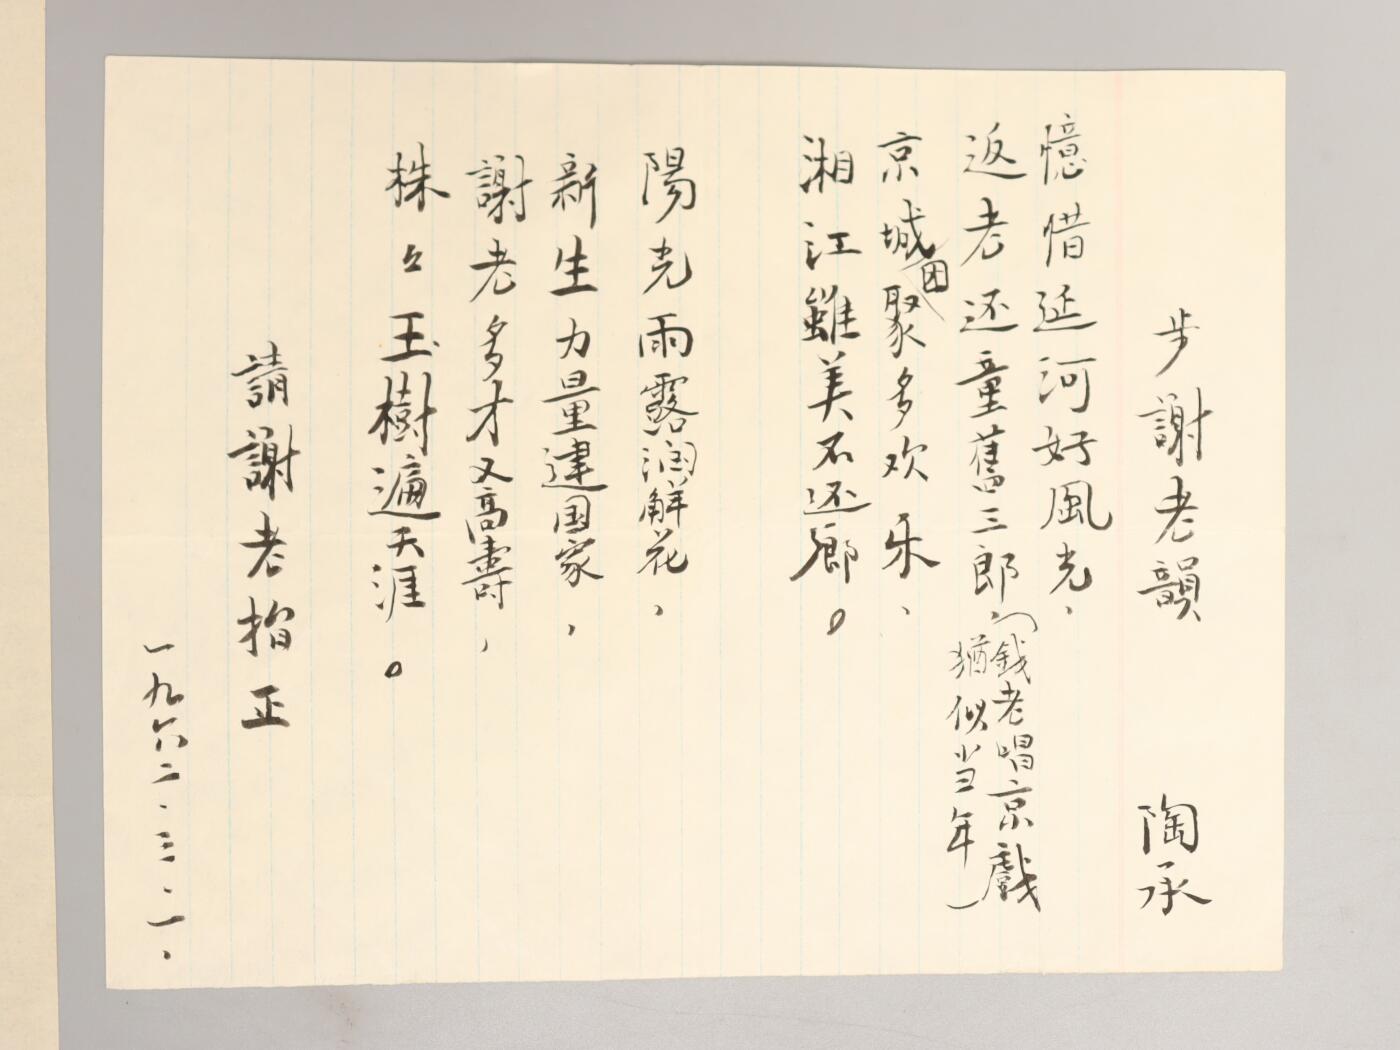 步謝老韻 陶承
憶惜延河好風光，
返老还童舊三郎（錢老唱京戲
猶似当年）
京城团聚多欢乐、
湘江雖美不还鄉。
陽光雨露润鮮花，
新生力量建国家，
謝老多才又高壽，
株々玉樹遍天涯。
請謝老指正
一九六二．三．一．